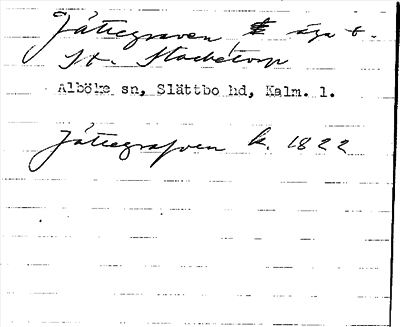 Jättegraven, äga t.
St. Stacketorp
Alböke sn, Slättbo hd, Kalm. l.
Jättegrafven k. 1822